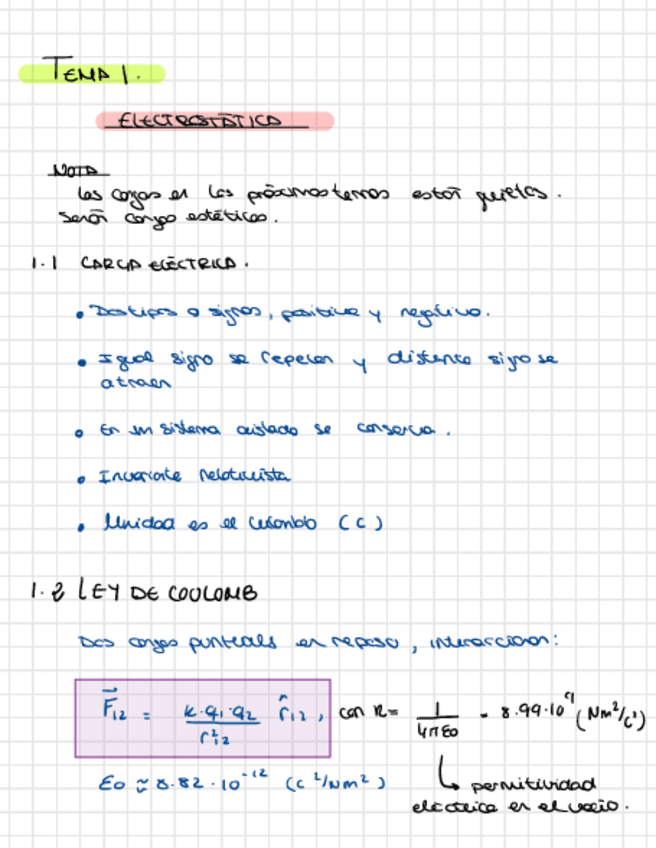 TEMA 1.
ELECTROSTÁTICA
NOTA
Las cargas en los próximos temas están quietas.
Serán cargas estáticas.
1.1 CARGA ELÉCTRICA.
• Dos tipos o signos, positiva y negativa.
• Igual signo se repelen y distinto signo se
atraen
• En un sistema aislado se conserva.
• Invariante relativista
• Unidad es el Culombio (C)
1.2 LEY DE COULOMB
Dos cargas puntuales en reposo, interaccionan:
F⃗₁₂ = k·q₁·q₂ / r²₁₂ r̂₁₂, con K = 1 / 4πε₀ = 8.99·10⁹ (Nm²/C²)
ε₀ ≈ 8.82·10⁻¹² (C²/Nm²) ↳ permitividad
eléctrica en el vacío.